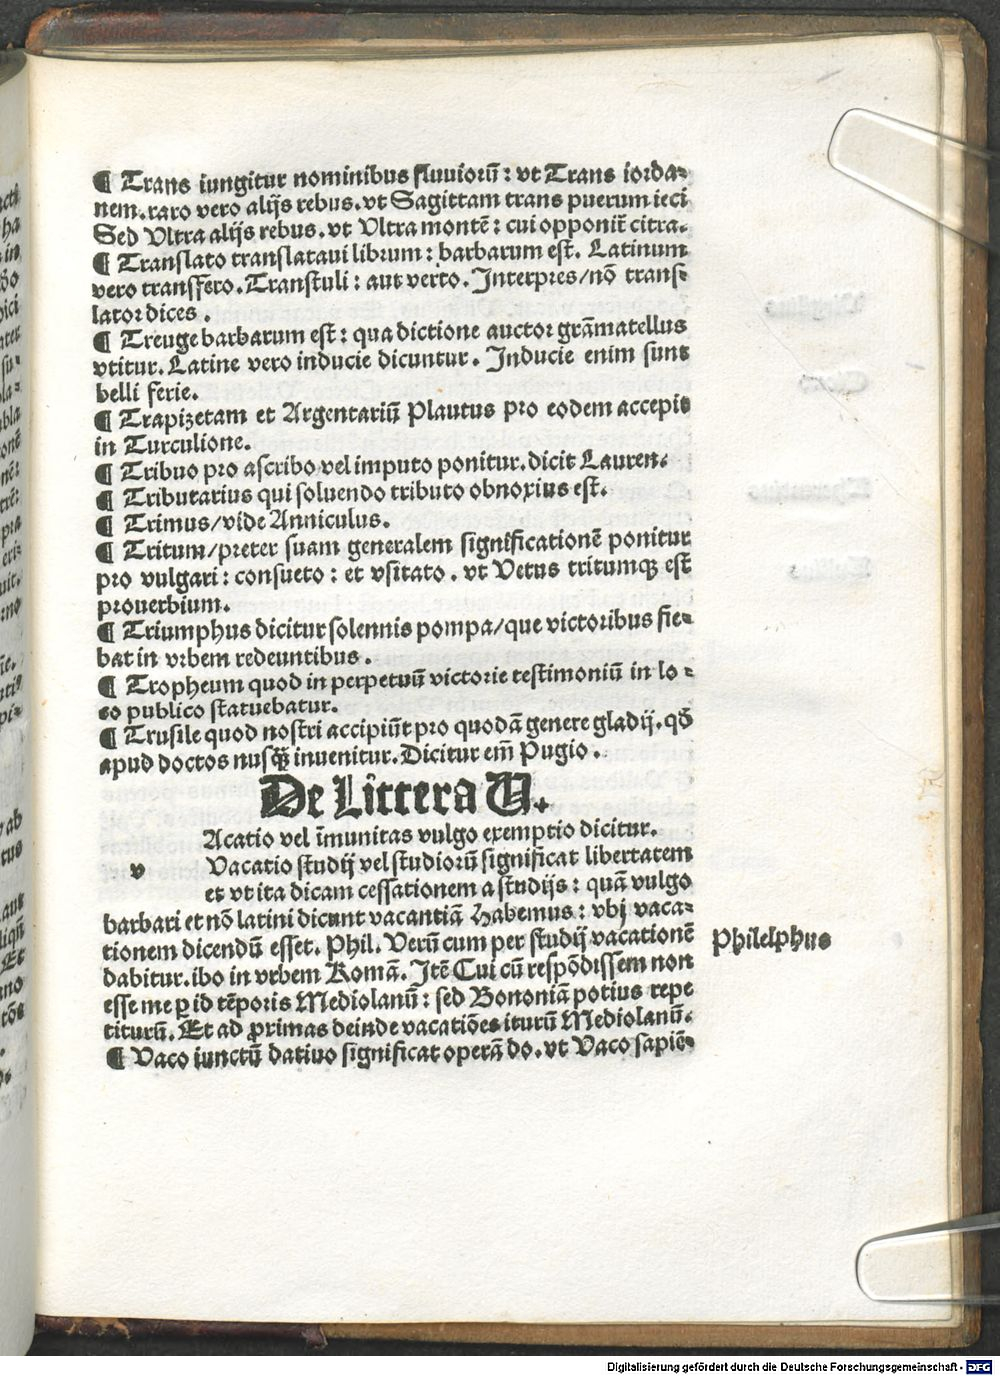 ¶ Trans iungitur nominibus fluuiorū: vt Trans iorda-
nem. raro vero alijs rebus. vt Sagittam trans puerum ieci
Sed Vltra alijs rebus. vt Vltra montē: cui opponit̄ citra.
¶ Translato translataui librum: barbarum est. Latinum
vero transfero. Transtuli: aut verto. Interpres/nō trans-
lator dices.
¶ Treuge barbarum est: qua dictione auctor grāmatellus
vtitur. Latine vero inducie dicuntur. Inducie enim sunt
belli ferie.
¶ Trapizetam et Argentariū Plautus pro eodem accepit
in Turculione.
¶ Tribuo pro ascribo vel imputo ponitur. dicit Lauren.
¶ Tributarius qui soluendo tributo obnoxius est.
¶ Trimus/vide Anniculus.
¶ Tritum/preter suam generalem significationē ponitur
pro vulgari: consueto: et vsitato. vt Vetus tritumqȝ est
prouerbium.
¶ Triumphus dicitur solennis pompa/que victoribus fie-
bat in vrbem redeuntibus.
¶ Tropheum quod in perpetuū victorie testimoniū in lo-
co publico statuebatur.
¶ Trusile quod nostri accipiūt pro quodā genere gladij. qđ
apud doctos nusqȝ̄ inuenitur. Dicitur em̄ Pugio.
De Littera U.
v
Acatio vel īmunitas vulgo exemptio dicitur.
Vacatio studij vel studiorū significat libertatem
et vt ita dicam cessationem a studijs: quā vulgo
barbari et nō latini dicunt vacantiā Habemus: vbj vaca-
tionem dicendū esset. Phil. Verū cum per studij vacationē
dabitur. ibo in vrbem Romā. Itē Cui cū respōdissem non
esse me ꝑ id tēporis Mediolanū: sed Bononiā potius repe
titurū. Et ad ꝓrimas deinde vacatiōes iturū Mediolanū.
¶ Vaco iunctū datiuo significat operā do. vt Vaco sapiē-
Philelphus
Digitalisierung gefördert durch die Deutsche Forschungsgemeinschaft - DFG